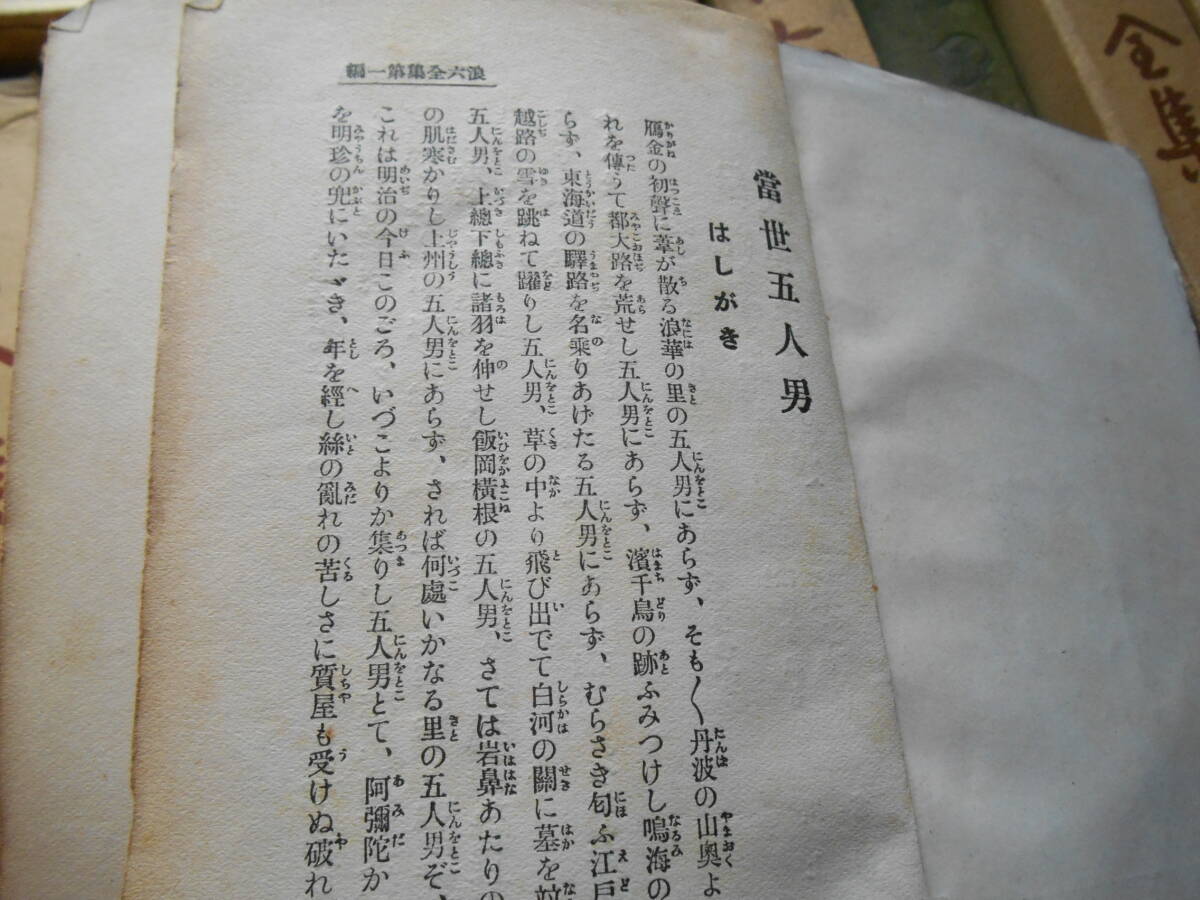 浪六全集第一編
當世五人男
はしがき
鴈金の初聲に葦が散る浪華の里の五人男にあらず、そも〳〵丹波の山奧よ
れを傳うて都大路を荒せし五人男にあらず、濱千鳥の跡ふみつけし鳴海の
らず、東海道の驛路を名乘りあげたる五人男にあらず、むらさき匂ふ江戸
越路の雪を跳ねて躍りし五人男、草の中より飛び出でて白河の關に墓を
五人男、上總下總に諸羽を伸せし飯岡橫根の五人男、さては岩鼻あたりの
の肌寒かりし上州の五人男にあらず、されば何處いかなる里の五人男ぞ、
これは明治の今日このごろ、いづこよりか集りし五人男とて、阿彌陀か
を明珍の兜にいたゞき、年を經し絲の亂れの苦しさに質屋も受けぬ破れ
全集